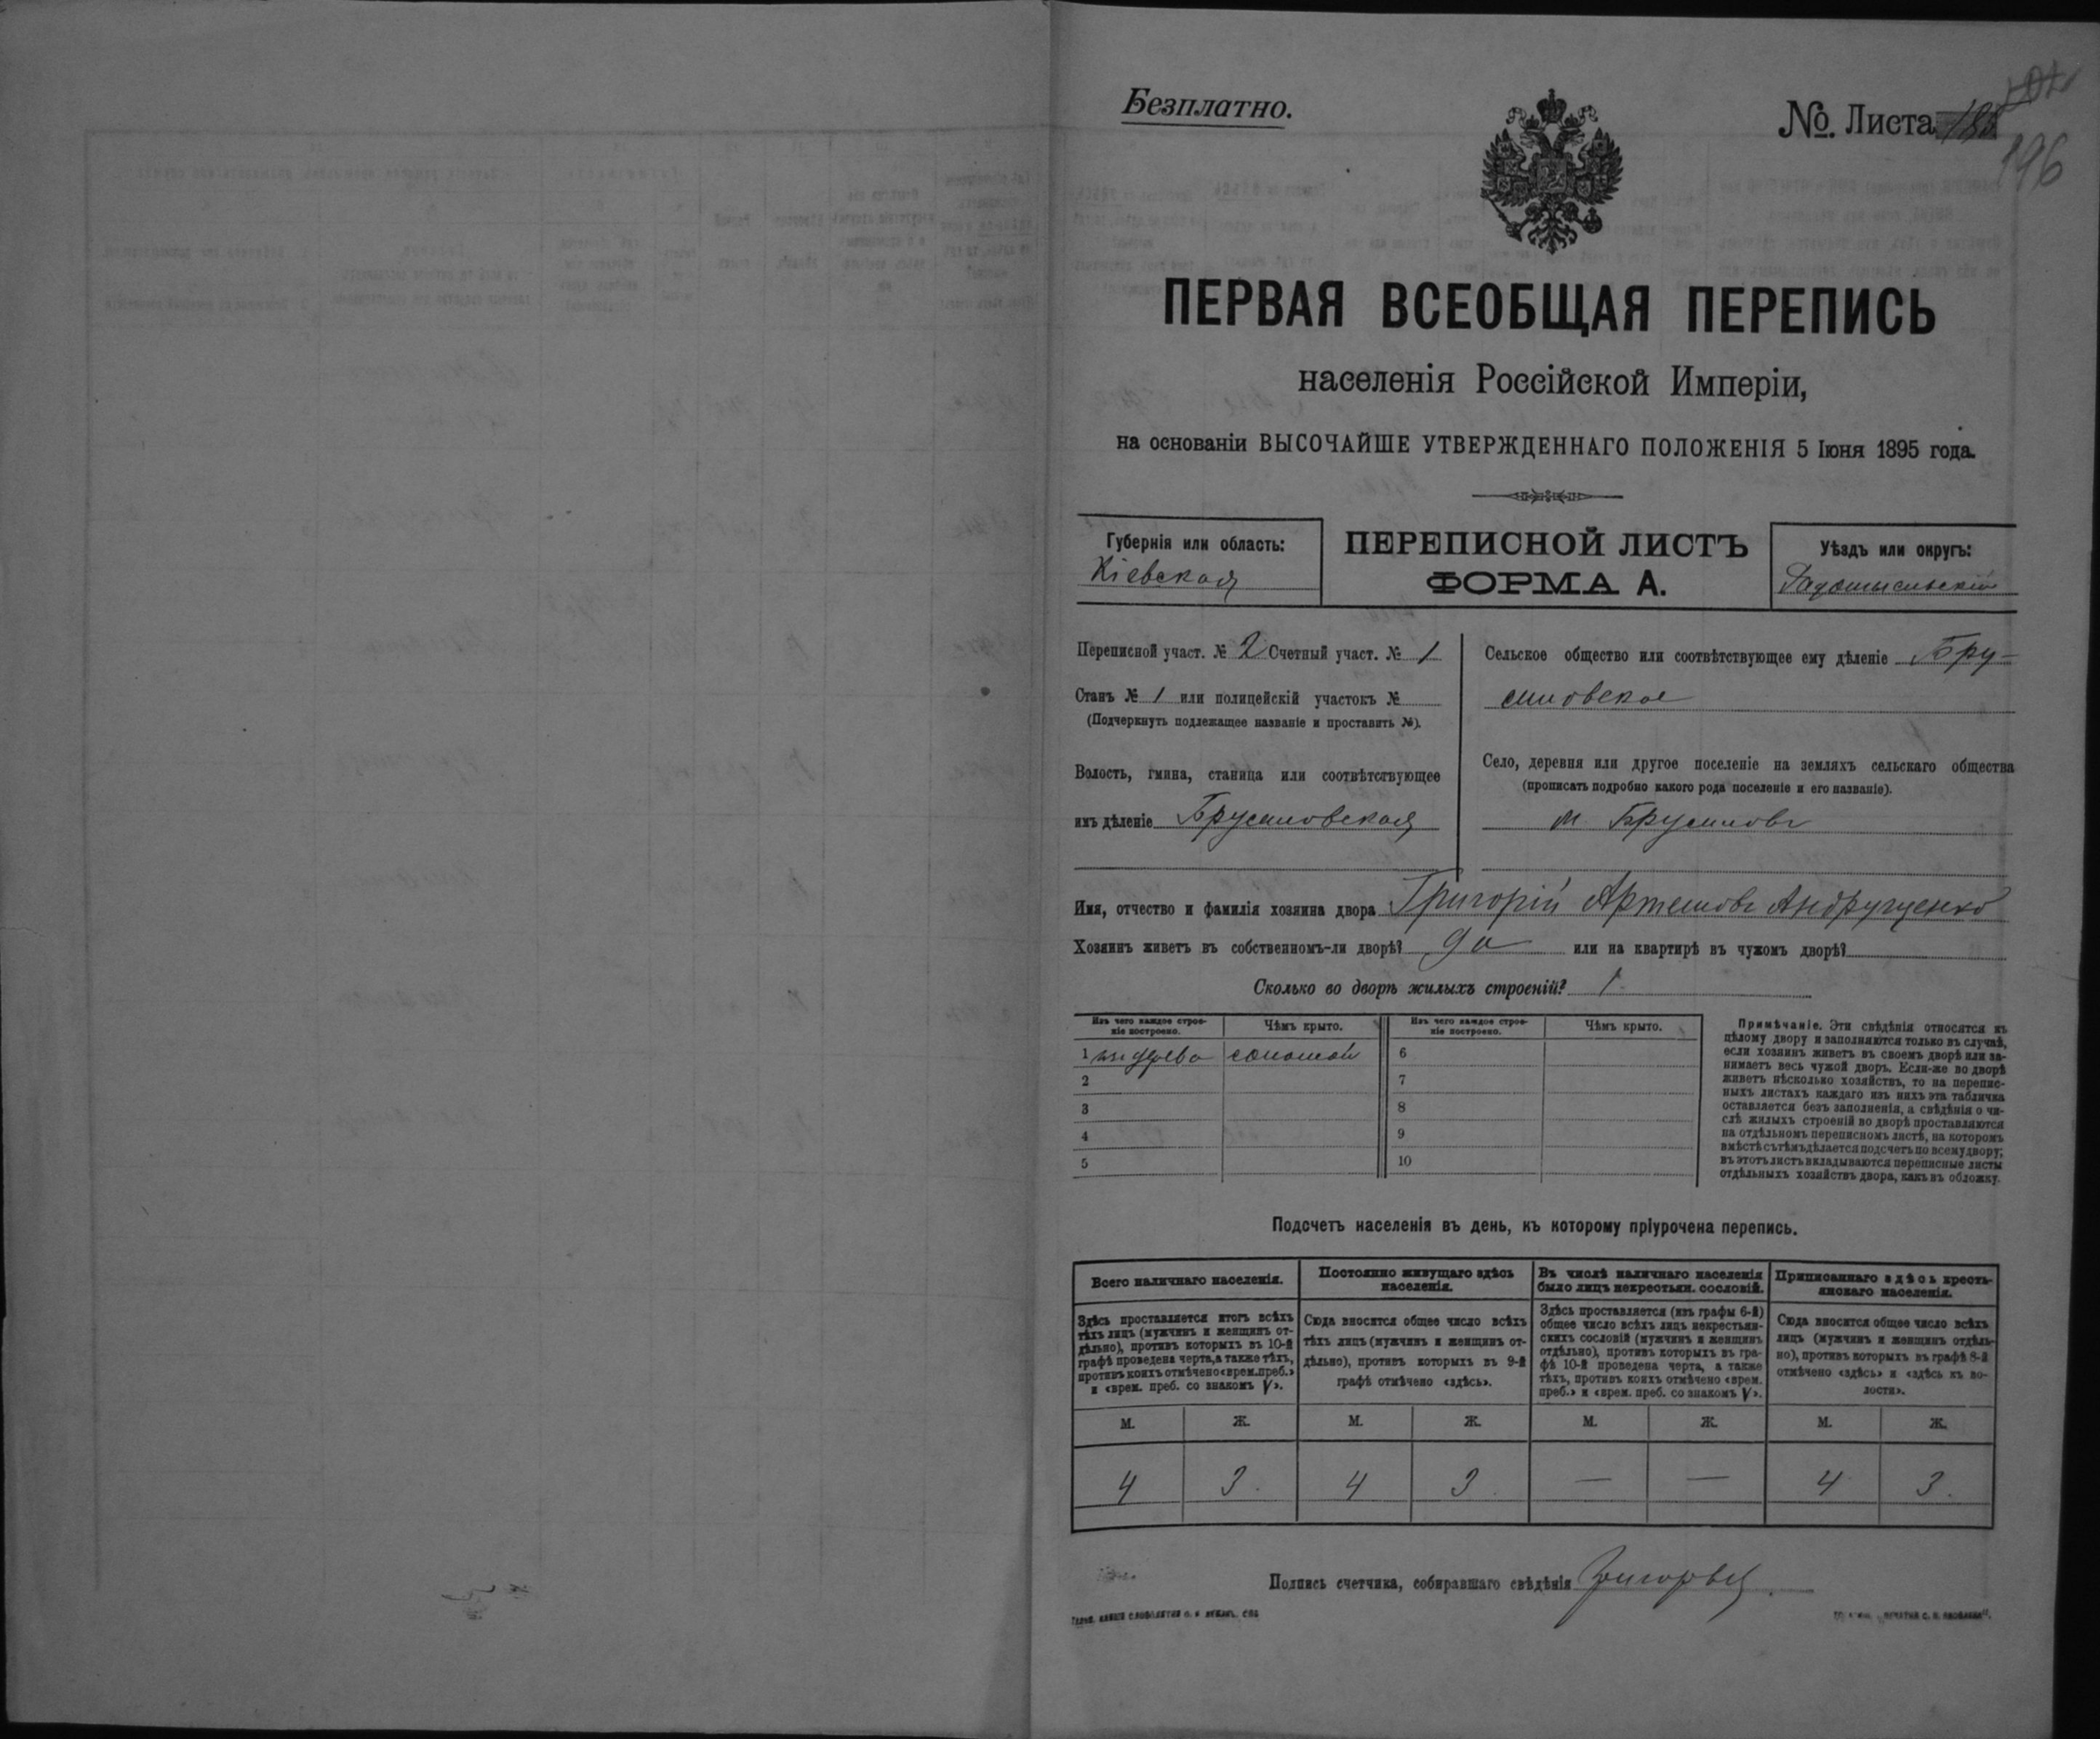 Безплатно.
№. Листа
196
ПЕРВАЯ ВСЕОБЩАЯ ПЕРЕПИСЬ
населенія Россійской Имперіи,
на основаніи ВЫСОЧАЙШЕ УТВЕРЖДЕННАГО ПОЛОЖЕНІЯ 5 Іюня 1895 года.
Губернія или область:
Кіевская
ПЕРЕПИСНОЙ ЛИСТЪ
ФОРМА А.
Уѣздъ или округъ:
Радомысльскій
Переписной участ. № 2 Счетный участ. № 1
Станъ № 1 или полицейскій участокъ №
(Подчеркнуть подлежащее названіе и проставить №).
Волость, гмина, станица или соотвѣтствующее
имъ дѣленіе Брусиловская
Сельское общество или соотвѣтствующее ему дѣленіе Бру-
силовское
Село, деревня или другое поселеніе на земляхъ сельскаго общества
(прописать подробно какого рода поселеніе и его названіе).
м. Брусиловъ
Имя, отчество и фамилія хозяина двора Григорій Артемовъ Андрущенко
Хозяинъ живетъ въ собственномъ-ли дворѣ? да или на квартирѣ въ чужомъ дворѣ?
Сколько во дворѣ жилыхъ строеній? 1.
Изъ чего каждое строе-
ніе построено.
Чѣмъ крыто.
Изъ чего каждое строе-
ніе построено.
Чѣмъ крыто.
1 изъ дерева соломой
2
3
4
5
6
7
8
9
10
Примѣчаніе. Эти свѣдѣнія относятся къ
цѣлому двору и заполняются только въ случаѣ,
если хозяинъ живетъ въ своемъ дворѣ или за-
нимаетъ весь чужой дворъ. Если-же во дворѣ
живетъ нѣсколько хозяйствъ, то на перепис-
ныхъ листахъ каждаго изъ нихъ эта табличка
оставляется безъ заполненія, а свѣдѣнія о чи-
слѣ жилыхъ строеній во дворѣ проставляются
на отдѣльномъ переписномъ листѣ, на которомъ
вмѣстѣ съ тѣмъ дѣлается подсчетъ по всему двору;
въ этотъ листъ вкладываются переписные листы
отдѣльныхъ хозяйствъ двора, какъ въ обложку.
Подсчетъ населенія въ день, къ которому пріурочена перепись.
Всего наличнаго населенія.
Постоянно живущаго здѣсь
населенія.
Въ числѣ наличнаго населенія
было лицъ некрестьян. сословій.
Приписаннаго здѣсь кресть-
янскаго населенія.
Здѣсь проставляется итогъ всѣхъ
тѣхъ лицъ (мужчинъ и женщинъ от-
дѣльно), противъ которыхъ въ 10-й
графѣ проведена черта, а также тѣхъ,
противъ коихъ отмѣчено «врем. преб.»
и «врем. преб. со знакомъ V».
Сюда вносится общее число всѣхъ
тѣхъ лицъ (мужчинъ и женщинъ от-
дѣльно), противъ которыхъ въ 9-й
графѣ отмѣчено «здѣсь».
Здѣсь проставляется (изъ графы 6-й)
общее число всѣхъ лицъ некрестьян-
скихъ сословій (мужчинъ и женщинъ
отдѣльно), противъ которыхъ въ гра-
фѣ 10-й проведена черта, а также
тѣхъ, противъ коихъ отмѣчено «врем.
преб.» и «врем. преб. со знакомъ V».
Сюда вносится общее число всѣхъ
лицъ (мужчинъ и женщинъ отдѣль-
но), противъ которыхъ въ графѣ 8-й
отмѣчено «здѣсь» и «здѣсь къ во-
лости».
М. Ж. М. Ж. М. Ж. М. Ж.
4 3. 4 3. — — 4 3.
Подпись счетчика, собиравшаго свѣдѣнія